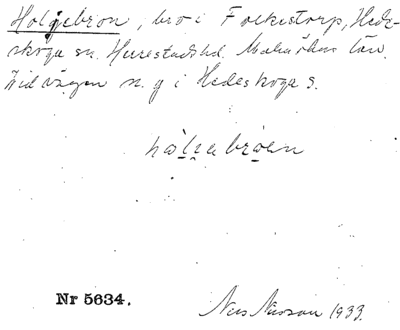 Holgebron, bro i Folkestorp, Hede-
skoga sn. Herrestads hd. Malmöhus län.
Vid vägen n. g i Hedeskoga s.
hòlɡabroen
Nr 5634.
Nils Nilsson 1933.